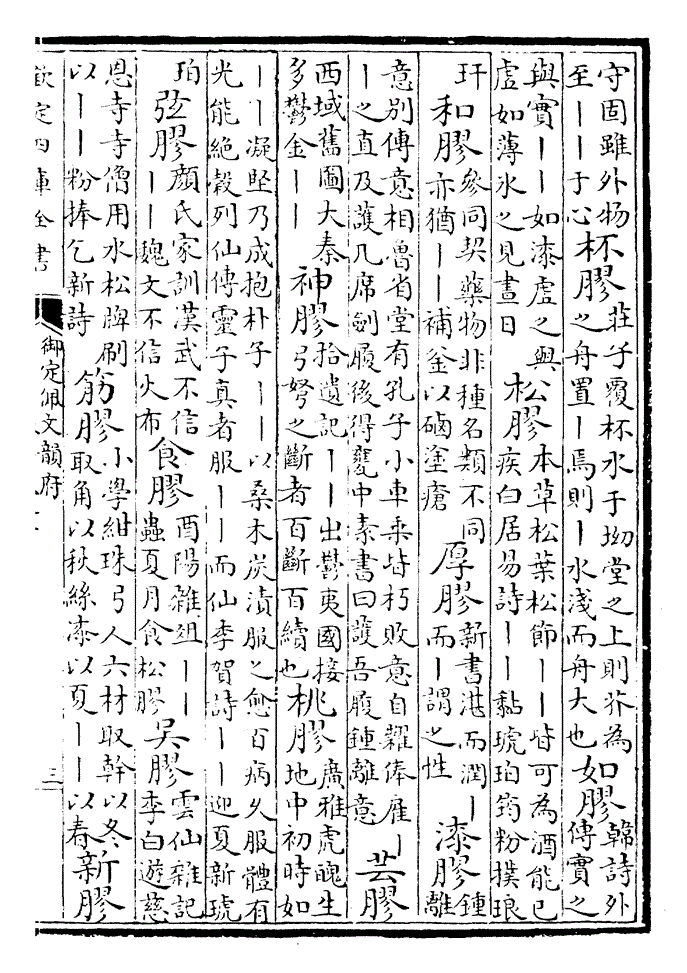 守固雖外物至丨丨于心杯膠莊子覆杯水于坳堂之上則芥為之舟置丨焉則丨水淺而舟大也如膠韓詩外傳實之
與實丨丨如漆虛之與虛如薄氷之見晝日松膠本草松葉松節丨丨皆可為酒能已疾白居易詩丨丨黏琥珀筠粉撲琅
玕和膠參同契藥物非種名類不同亦猶丨丨補釜以硇塗瘡厚膠新書湛而潤丨而丨謂之性漆膠鍾離
意别傳意相魯省堂有孔子小車乘皆朽敗意自糶俸雇丨丨之直及護几席劍履後得甕中素書曰護吾履鍾離意芸膠
西域舊圖大秦多鬱金丨丨神膠拾遺記丨丨出鬱夷國接弓弩之斷者百斷百續也桃膠廣雅虎魄生地中初時如
丨丨凝堅乃成抱朴子丨丨以桑木炭漬服之愈百病久服體有光能絶穀列仙傳靈子真者服丨丨而仙李賀詩丨丨迎夏新琥
珀弦膠顏氏家訓漢武不信丨丨魏文不信火布食膠酉陽雜俎丨丨蟲夏月食松膠吳膠雲仙雜記李白遊慈
恩寺寺僧用水松牌刷以丨丨粉捧乞新詩筋膠小學紺珠弓人六材取幹以冬取角以秋絲漆以夏丨丨以春新膠
欽定四庫全書
御定佩文韻府
三